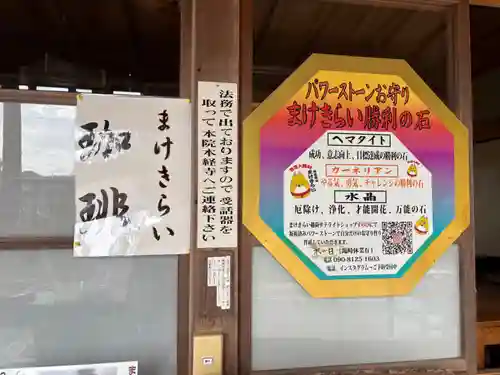 まけきらい
珈琲
法務で出ておりますので受話器
取って本院本経寺へご連絡下さい
パワーストーンお守り
まけきらい勝利の石
ヘマタイト
成功、意志向上、目標達成の勝利石
カーネリアン
やる気、勇気、チャレンジの勝利石
水晶
厄除け、浄化、才能開花、万能の石
電話 090-8125 1603
電話、インスタグラムへご予約下さい